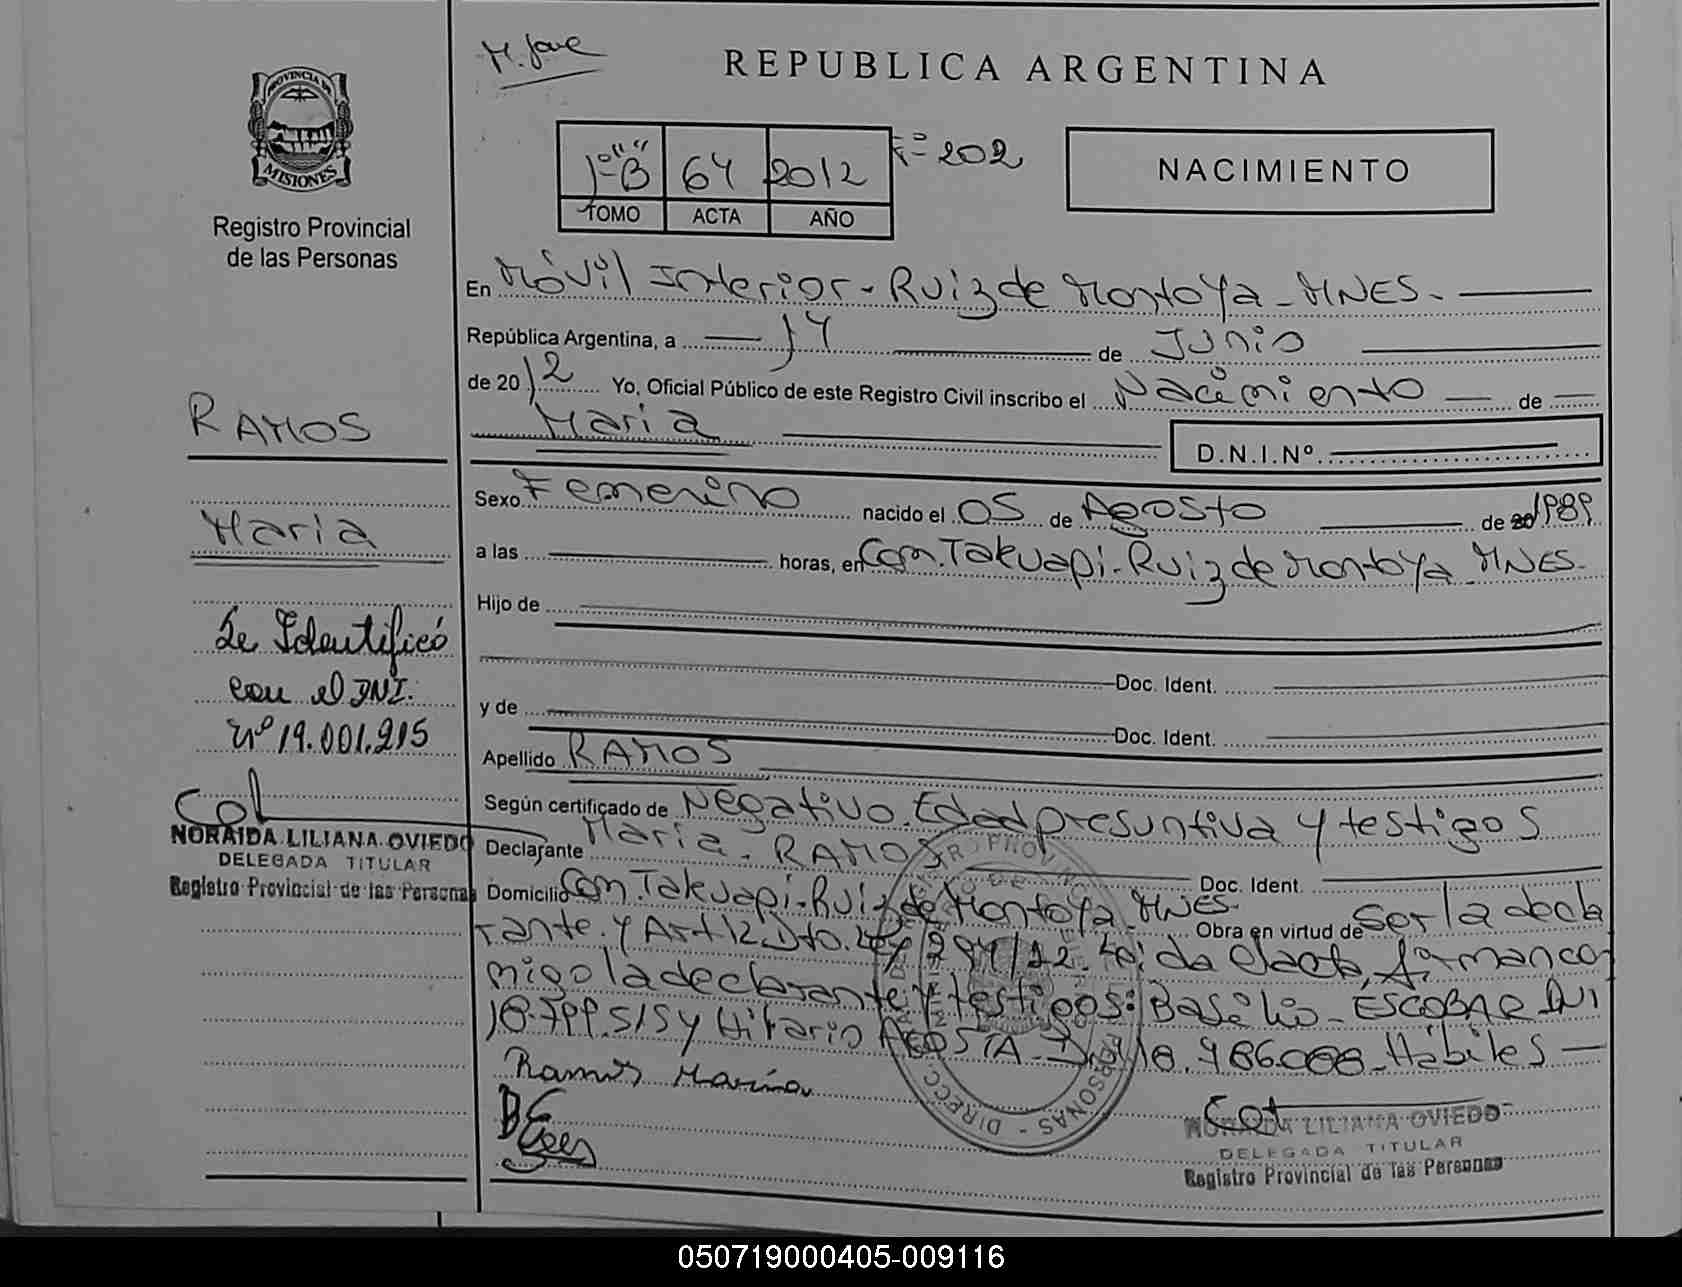 M. Jose
REPUBLICA ARGENTINA
PROVINCIA DE
MISIONES
Registro Provincial
de las Personas
1º "B" 64 2012 Fº 202
TOMO ACTA AÑO
NACIMIENTO
En Móvil Interior - Ruiz de Montoya - MNES -
República Argentina, a 14 de Junio
de 2012 Yo, Oficial Público de este Registro Civil inscribo el Nacimiento de
Maria
D.N.I.Nº
RAMOS
Maria
Se Identificó
con el DNI.
Nº 19.001.215
NORAIDA LILIANA OVIEDO
DELEGADA TITULAR
Registro Provincial de las Personas
Sexo Femenino nacido el 05 de Agosto de 20 1989
a las horas, en Com. Takuapi - Ruiz de Montoya MNES -
Hijo de
Doc. Ident.
y de
Doc. Ident.
Apellido RAMOS
Según certificado de Negativo. Edad presuntiva y testigos
Declarante Maria - RAMOS
Doc. Ident.
Domicilio Com. Takuapi - Ruiz de Montoya MNES -
Obra en virtud de Ser la decla
rante. y Art 12 Dto. Ley Leida el acta, firman co
migo la declarante y testigos: Basilio - ESCOBAR DNI
18.799.515 y Hilario ACOSTA - DNI 18. Hábiles
Ramos Marina
NORAIDA LILIANA OVIEDO
DELEGADA TITULAR
Registro Provincial de las Personas
050719000405-009116